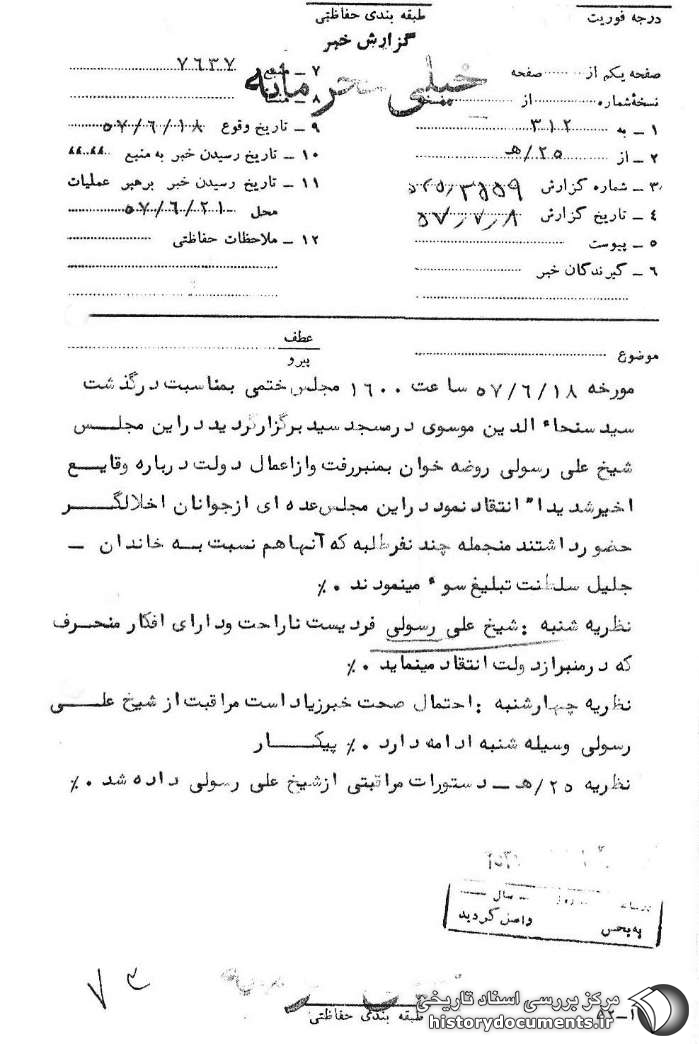 درجه فوریت
طبقه بندی حفاظتی
گزارش خبر
خیلی محرمانه
صفحه یکم از صفحه
نسخه شماره از
۱ ـ به ۳۱۲
۲ ـ از ۲۵/هـ
۳ ـ شماره گزارش
۴ ـ تاریخ گزارش ۵۷/۷/۸
۵ ـ پیوست
۶ ـ گیرندگان خبر
۷ ـ منبع ۷۶۳۷
۸ ـ منشاء
۹ ـ تاریخ وقوع ۵۷/۶/۱۸
۱۰ ـ تاریخ رسیدن خبر به منبع
۱۱ ـ تاریخ رسیدن خبر برهبر عملیات
محل ۵۷/۶/۲۱
۱۲ ـ ملاحظات حفاظتی
موضوع
عطف
پیرو
مورخه ۵۷/۶/۱۸ ساعت ۱۶۰۰ مجلس ختمی بمناسبت درگذشت
سید سنحاء الدین موسوی درمسجد سید برگزارگردید دراین مجلس
شیخ علی رسولی روضه خوان بمنبررفت وازاعمال دولت درباره وقایع
اخیرشدیدا" انتقاد نمود دراین مجلس عده ای ازجوانان اخلالگر
حضورداشتند منجمله چند نفرطلبه که آنهاهم نسبت به خاندان ـ
جلیل سلطنت تبلیغ سوء مینمودند ۰٪
نظریه شنبه : شیخ علی رسولی فردیست ناراحت ودارای افکار منحرف
که درمنبرازدولت انتقاد مینماید ۰٪
نظریه چهارشنبه : احتمال صحت خبرزیاد است مراقبت از شیخ علی
رسولی وسیله شنبه ادامه دارد ۰٪ پیکار
نظریه ۲۵/هـ ـ دستورات مراقبتی ازشیخ علی رسولی داده شد ۰٪
سال
به بخش واصل گردید
طبقه بندی حفاظتی
مرکز بررسی اسناد تاریخی
historydocuments.ir